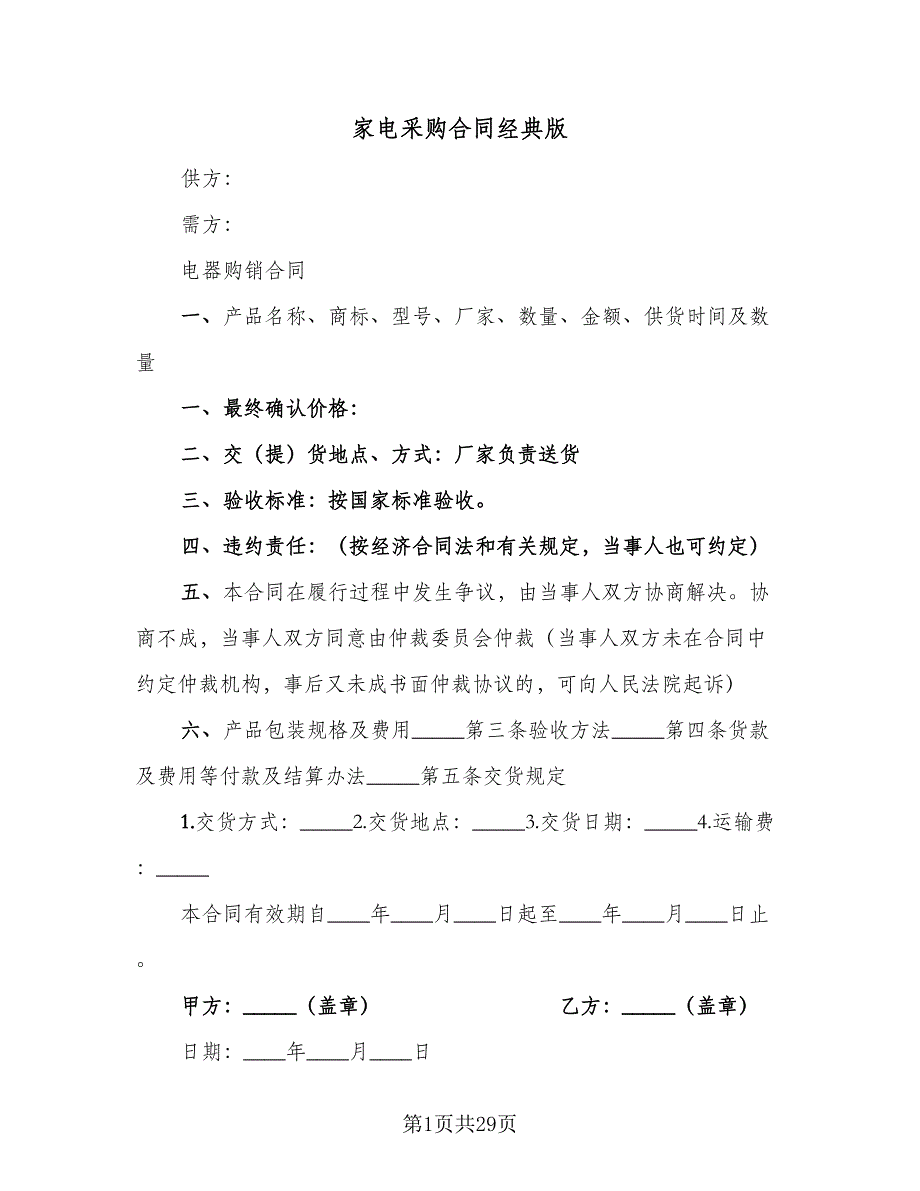 家电采购合同经典版
供方：
需方：
电器购销合同
一、产品名称、商标、型号、厂家、数量、金额、供货时间及数
量
一、最终确认价格：
二、交（提）货地点、方式：厂家负责送货
三、验收标准：按国家标准验收。
四、违约责任：（按经济合同法和有关规定，当事人也可约定）
五、本合同在履行过程中发生争议，由当事人双方协商解决。协
商不成，当事人双方同意由仲裁委员会仲裁（当事人双方未在合同中
约定仲裁机构，事后又未成书面仲裁协议的，可向人民法院起诉）
六、产品包装规格及费用_____第三条验收方法_____第四条货款
及费用等付款及结算办法_____第五条交货规定
1.交货方式：_____2.交货地点：_____3.交货日期：_____4.运输费
：_____
本合同有效期自____年____月____日起至____年____月____日止
。
甲方：_____（盖章） 乙方：_____（盖章）
日期：____年____月____日
第1页共29页